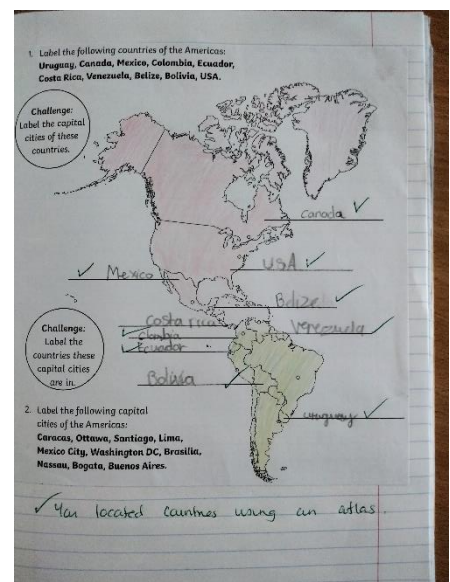 1. Label the following countries of the Americas:
Uruguay, Canada, Mexico, Colombia, Ecuador,
Costa Rica, Venezuela, Belize, Bolivia, USA.
Challenge:
Label the capital
cities of these
countries.
Canada
USA
Mexico
Belize
Costa rica
Venezuela
Ecuador
Challenge:
Label the
countries these
capital cities
are in.
Uruguay
2. Label the following capital
cities of the Americas:
Caracas, Ottawa, Santiago, Lima,
Mexico City, Washington DC, Brasilia,
Nassau, Bogata, Buenos Aires.
You located countries using an atlas.